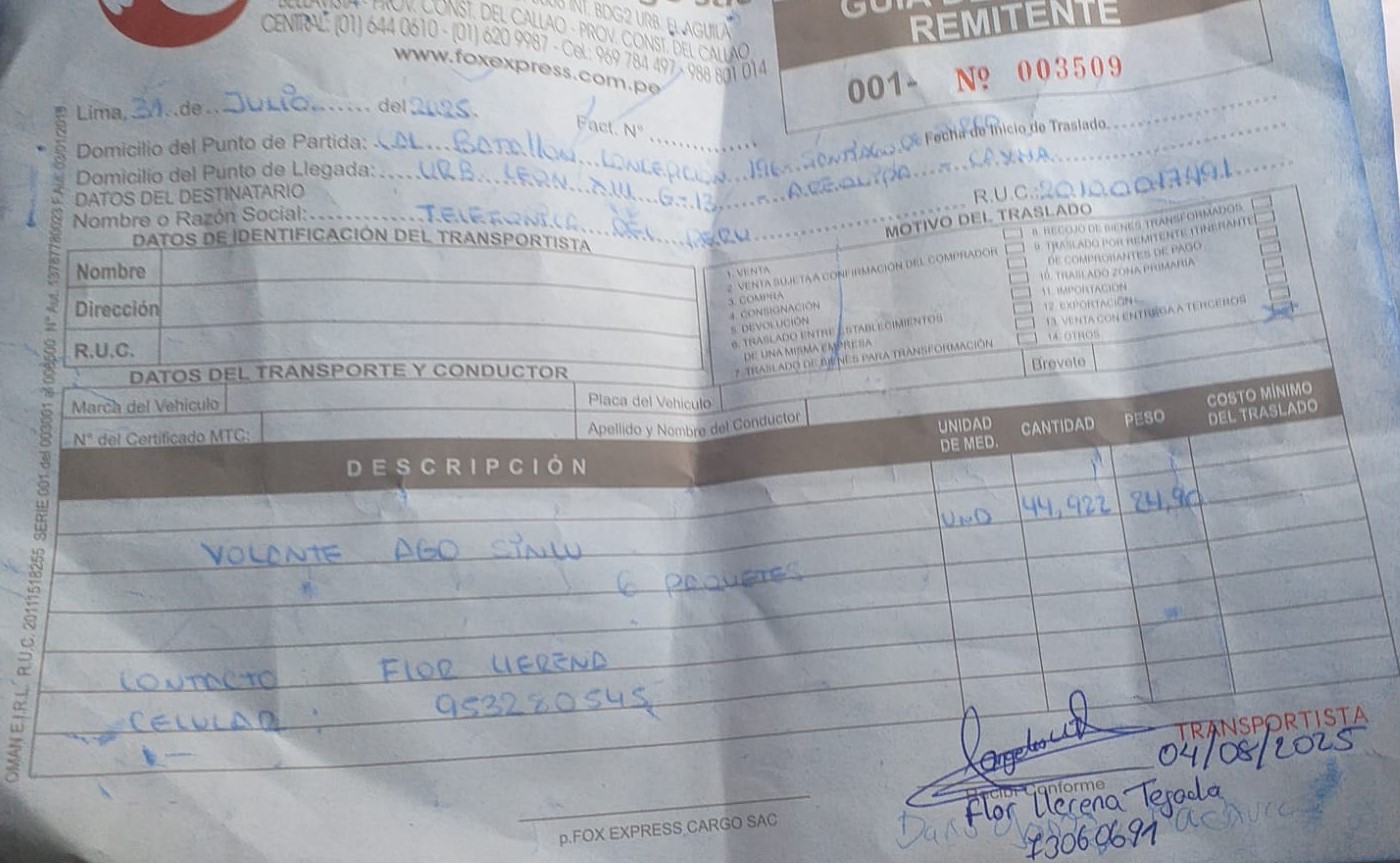 INT. BDG2 URB. EL AGUILA
BELLAVISTA - PROV. CONST. DEL CALLAO - PROV. CONST. DEL CALLAO
CENTRAL: (01) 644 0610 - (01) 620 9987 - Cel.: 969 784 497 - 988 801 014
www.foxexpress.com.pe
REMITENTE
001- Nº 003509
Lima, 31 de JULIO del 2025.
Fact. N°
Fecha de Inicio de Traslado
Domicilio del Punto de Partida: CAL BATALLON CONCEPCION 196 - SANTIAGO DE SURCO
Domicilio del Punto de Llegada: URB. LEON XIII G-13 - AREQUIPA - CAYMA
DATOS DEL DESTINATARIO
Nombre o Razón Social: TELEFONICA DEL PERU
R.U.C.: 20100017491
DATOS DE IDENTIFICACIÓN DEL TRANSPORTISTA
Nombre
Dirección
R.U.C.
MOTIVO DEL TRASLADO
1. VENTA
2. VENTA SUJETA A CONFIRMACIÓN DEL COMPRADOR
3. COMPRA
4. CONSIGNACIÓN
5. DEVOLUCIÓN
6. TRASLADO ENTRE ESTABLECIMIENTOS
DE UNA MISMA EMPRESA
7. TRASLADO DE BIENES PARA TRANSFORMACIÓN
8. RECOJO DE BIENES TRANSFORMADOS
9. TRASLADO POR REMITENTE ITINERANTE
DE COMPROBANTES DE PAGO
10. TRASLADO ZONA PRIMARIA
11. IMPORTACIÓN
12. EXPORTACIÓN
13. VENTA CON ENTREGA A TERCEROS
14. OTROS
DATOS DEL TRANSPORTE Y CONDUCTOR
Marca del Vehiculo
Placa del Vehiculo
Brevete
N° del Certificado MTC:
Apellido y Nombre del Conductor
DESCRIPCIÓN
UNIDAD DE MED.
CANTIDAD
PESO
COSTO MÍNIMO DEL TRASLADO
VOLANTE AGO SINLU
UND 44,922 84,90
6 PAQUETES
CONTACTO FLOR LLERENA
CELULAR : 953280545
TRANSPORTISTA
04/08/2025
Recibí Conforme
Flor Llerena Tejada
73060691
p.FOX EXPRESS CARGO SAC
OMAN E.I.R.L. R.U.C. 20111518255 SERIE 001 del 003001 al